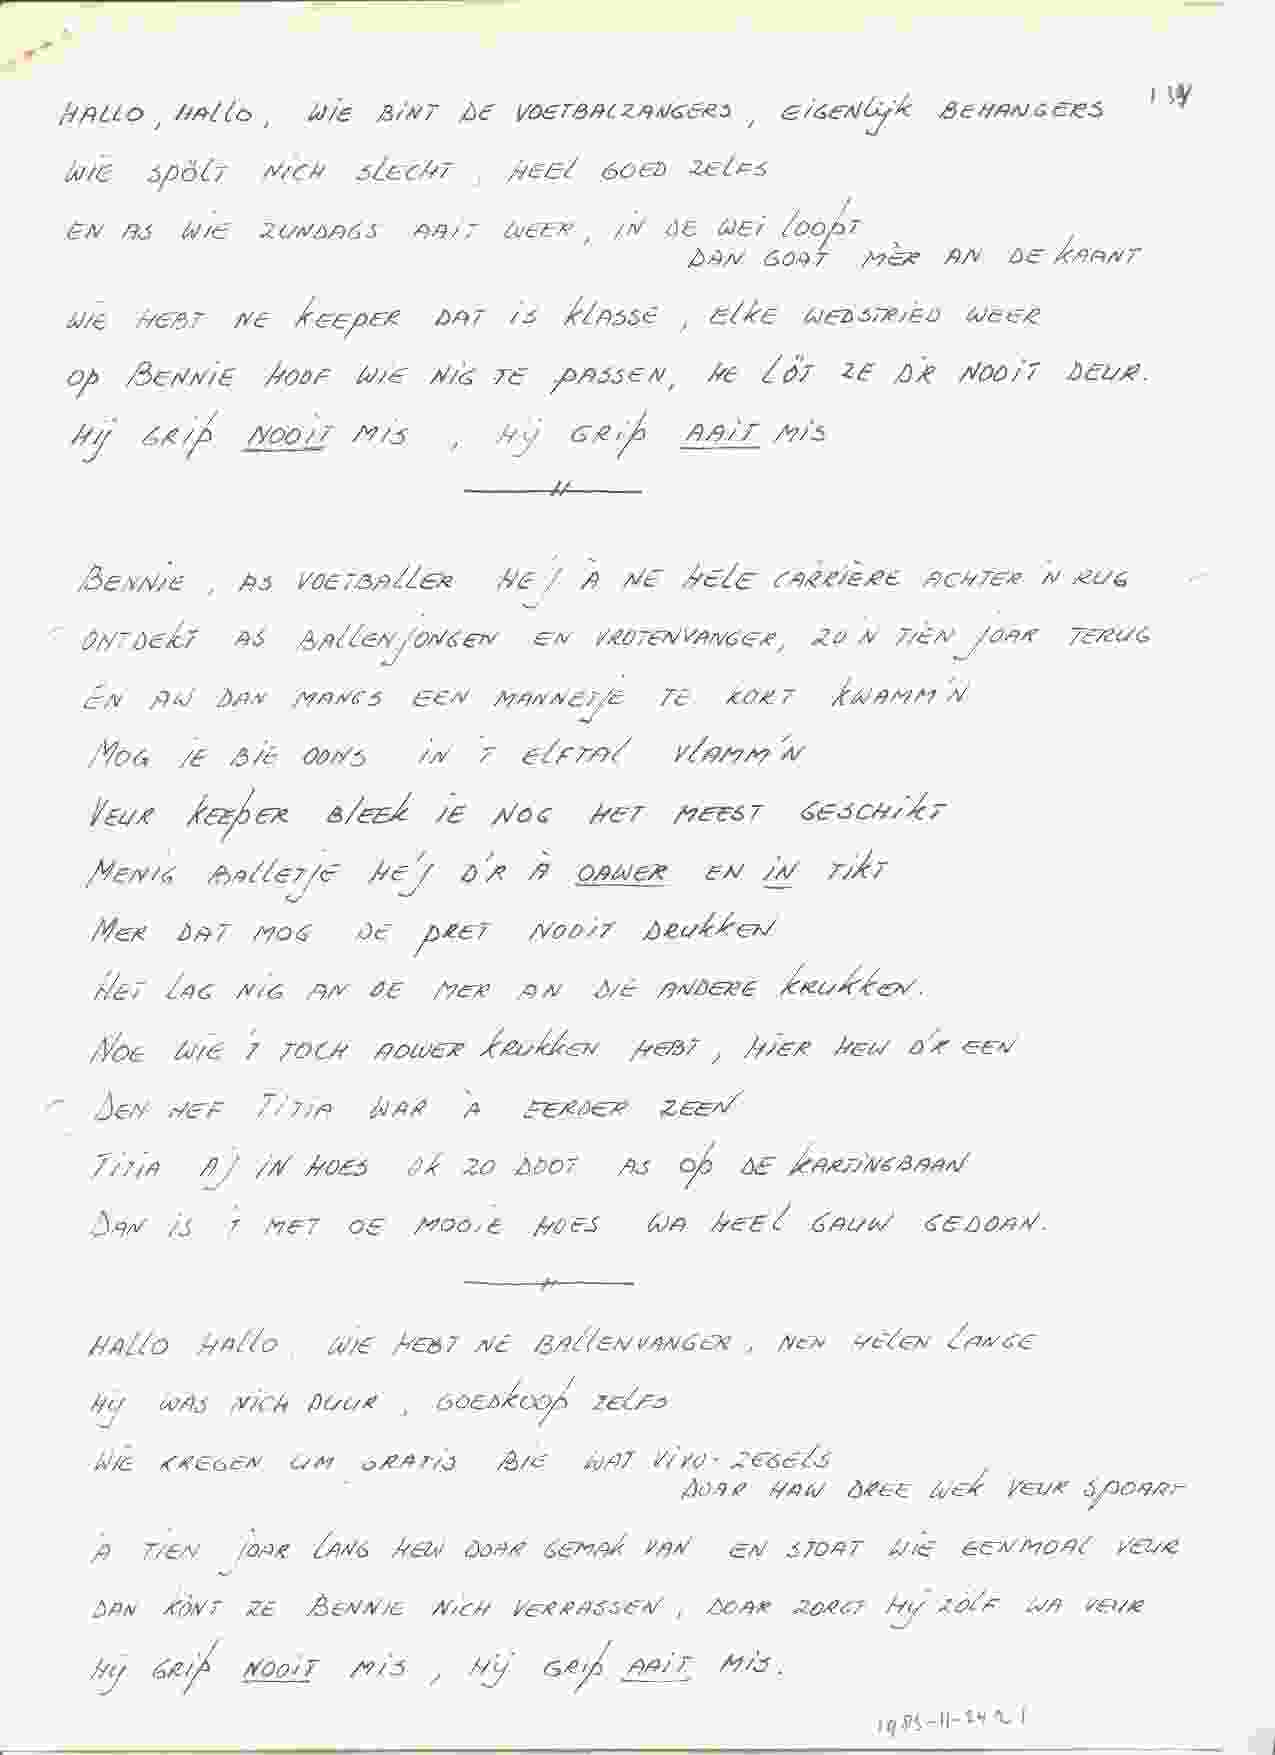 HALLO, HALLO, WIE BINT DE VOETBALZANGERS, EIGENLIJK BEHANGERS
WIE SPÖLT NICH SLECHT, HEEL GOED ZELFS
EN AS WIE ZUNDAGS AAIT WEER, IN DE WEI LOOPT
DAN GOAT MÈR AN DE KAANT
WIE HEBT NE KEEPER DAT IS KLASSE, ELKE WEDSTRIED WEER
OP BENNIE HOOF WIE NIG TE PASSEN, HE LÖT ZE D'R NOOIT DEUR.
HIJ GRIP NOOIT MIS, HIJ GRIP AAIT MIS
BENNIE, AS VOETBALLER HE'J À NE HELE CARRIÈRE ACHTER 'N RUG
ONTDEKT AS BALLENJONGEN EN VROTENVANGER, ZO'N TIEN JOAR TERUG
EN AW DAN MANGS EEN MANNETJE TE KORT KWAMM'N
MOG IE BIE OONS IN 'T ELFTAL VLAMM'N
VEUR KEEPER BLEEK IE NOG HET MEEST GESCHIKT
MENIG BALLETJE HE'J D'R À OAWER EN IN TIKT
MER DAT MOG DE PRET NOOIT DRUKKEN
HET LAG NIG AN OE MER AN DIE ANDERE KRUKKEN.
NOE WIE 'T TOCH AOWER KRUKKEN HEBT, HIER HEW D'R EEN
DEN HEF TITIA WAR 'A EERDER ZEEN
TITIA A'J IN HOES OK ZO DOOT AS OP DE KARTINGBAAN
DAN IS 'T MET OE MOOIE HOES WA HEEL GAUW GEDOAN.
HALLO HALLO, WIE HEBT NE BALLENVANGER, NEN HELEN LANGE
HIJ WAS NICH DUUR, GOEDKOOP ZELFS
WIE KREGEN UM GRATIS BIE WAT VIVO-ZEGELS
DOAR HAW DREE WEK VEUR SPOART
'A TIEN JOAR LANG HEW DOAR GEMAK VAN EN STOAT WIE EENMOAL VEUR
DAN KÖNT ZE BENNIE NICH VERRASSEN, DOAR ZORGT HIJ ZÖLF WA VEUR
HIJ GRIP NOOIT MIS, HIJ GRIP AAIT MIS.